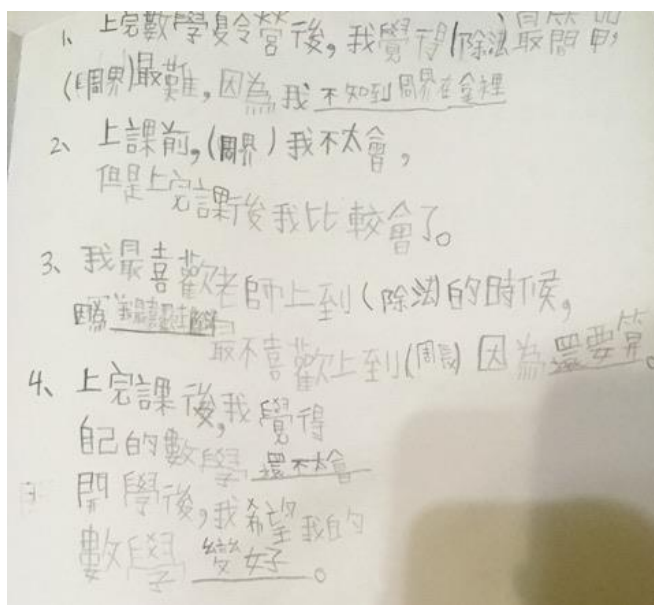 1、上完數學夏令營後,我覺得(除法)最簡單
(周界)最難,因為我不知到周界在拿裡
2、上課前,(周界)我不太會,
但是上完課後我比較會了。
3、我最喜歡老師上到(除法)的時候,
因為
最不喜歡上到(周長)因為還要算。
4、上完課後,我覺得
自己的數學還不太會
開學後,我希望我的
數學變好。